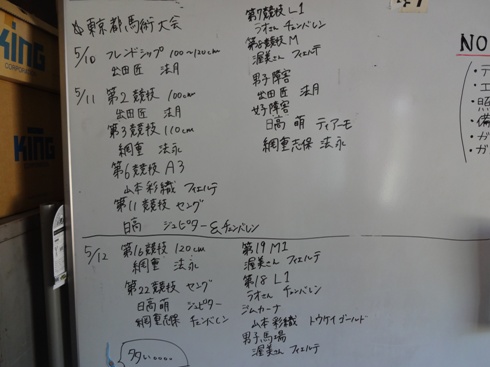 東京都馬術大会
5/10 フレンドシップ 100~120cm
出田匠 法月
5/11 第2競技 100cm
出田匠 法月
第3競技 110cm
綱重 法永
第6競技 A3
山本彩織 フィエルテ
第11競技 セング
日高 ジュピター&チェンバレン
第7競技 L1
ラオさん チェンバレン
M
渥美さん フィエルテ
男子障害
出田匠 法月
女子障害
日高萌 ティアーモ
綱重志保 法永
5/12 第16競技 120cm
綱重 法永
第22競技 セング
日高萌 ジュピター
綱重志保 チェンバレン
第19 M1
渥美さん フィエルテ
第18 L1
ラオさん チェンバレン
ジムカーナ
山本彩織 トウケイゴールド
男子馬場
渥美さん フィエルテ
NO
・テ
・エ
・照
・備
・ガ
・ガ
KING
KING